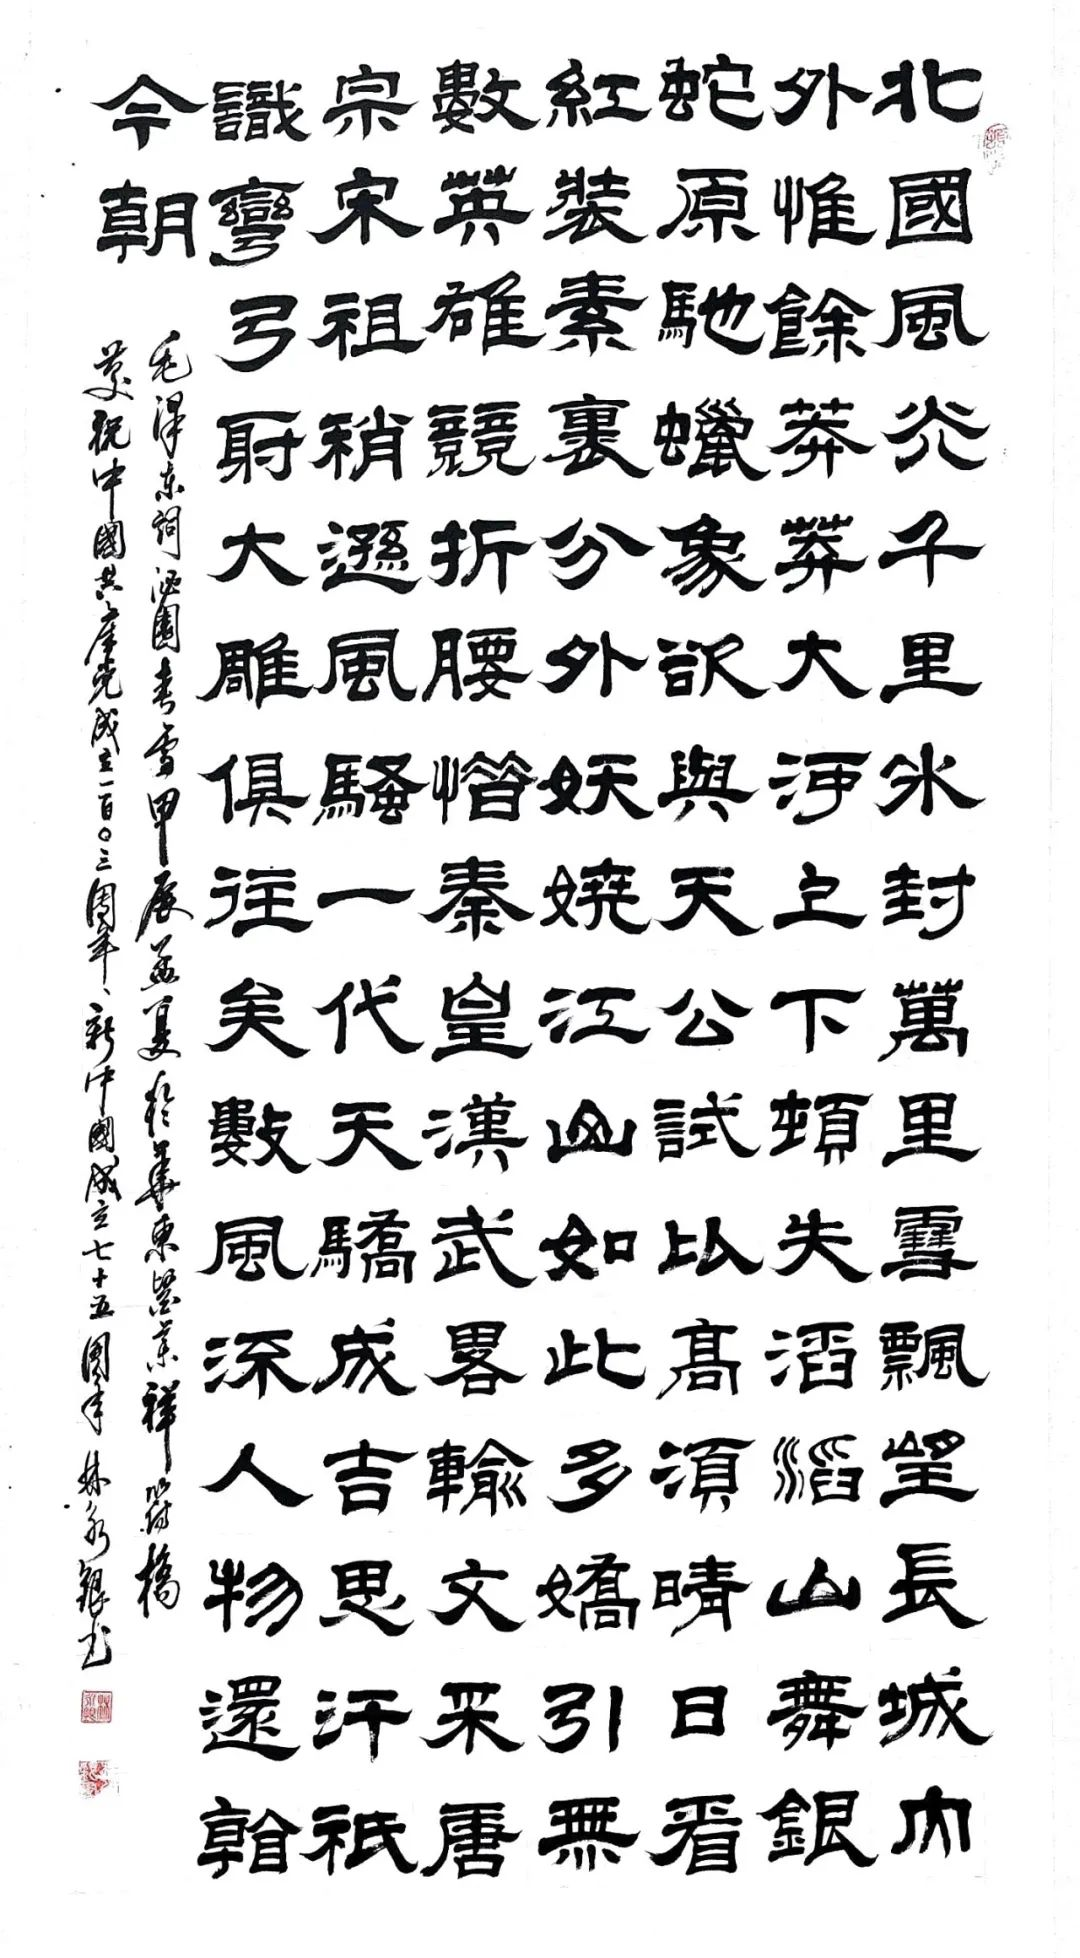 北國風光千里冰封萬里雪飄望長城內
外惟餘莽莽大河上下頓失滔滔山舞銀
蛇原馳蠟象欲與天公試比高須晴日看
紅裝素裹分外妖嬈江山如此多嬌引無
數英雄競折腰惜秦皇漢武畧輸文采唐
宗宋祖稍遜風騷一代天驕成吉思汗祇
識彎弓射大雕俱往矣數風流人物還看
今朝
毛澤東詞沁園春雪甲辰孟夏於華東業祥符橋
慶祝中國共產党成立一百〇三周年、新中國成立七十五周年林永銀书